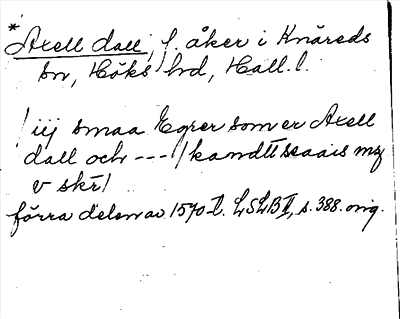 *
Axell dall, f. åker i Knäreds
sn, Höks hd, Hall. l.
/ iij smaa Egrer som er Axell
dall och --- / kandtt saais mz
v skr/
förra delen av 1570-t. LSLB II, s. 388. orig.